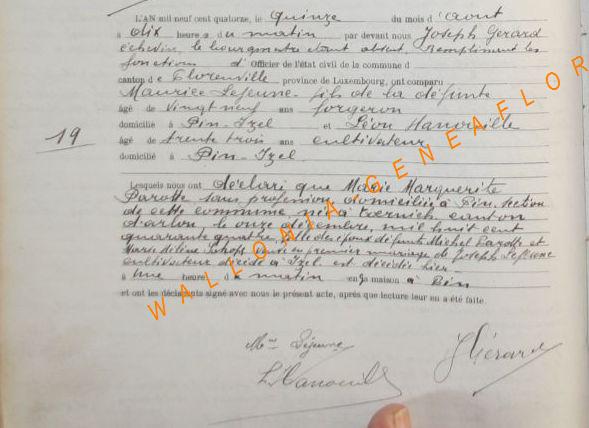 L'AN mil neuf cent quatorze, le quinze du mois d'août
à dix heures du matin par devant nous Joseph Gérard
échevin, le bourgmestre étant absent, remplissant les
fonctions d'Officier de l'état civil de la commune d
canton de Florenville province de Luxembourg, ont comparu
Maurice Lejeune fils de la défunte
âgé de vingt neuf ans forgeron
domicilié à Pin-Izel et Léon Hanouille
19
âgé de trente trois ans cultivateur
domicilié à Pin-Izel
Lesquels nous ont déclaré que Marie Marguerite
Parotte sans profession domiciliée à Pin, section
de cette commune née à canton
d'arlon le onze décembre, mil huit cent
quarante quatre, fille des époux défunts Michel et
en premier mariage de Joseph Lejeune
cultivateur décédé à Izel est décédée hier
à une heure du matin en sa maison à Pin
et ont les déclarants signé avec nous le présent acte, après que lecture leur en a été faite.
Mce Lejeune
L. Hanouille
J Gérard
WALLONIA-GENEAFLOR